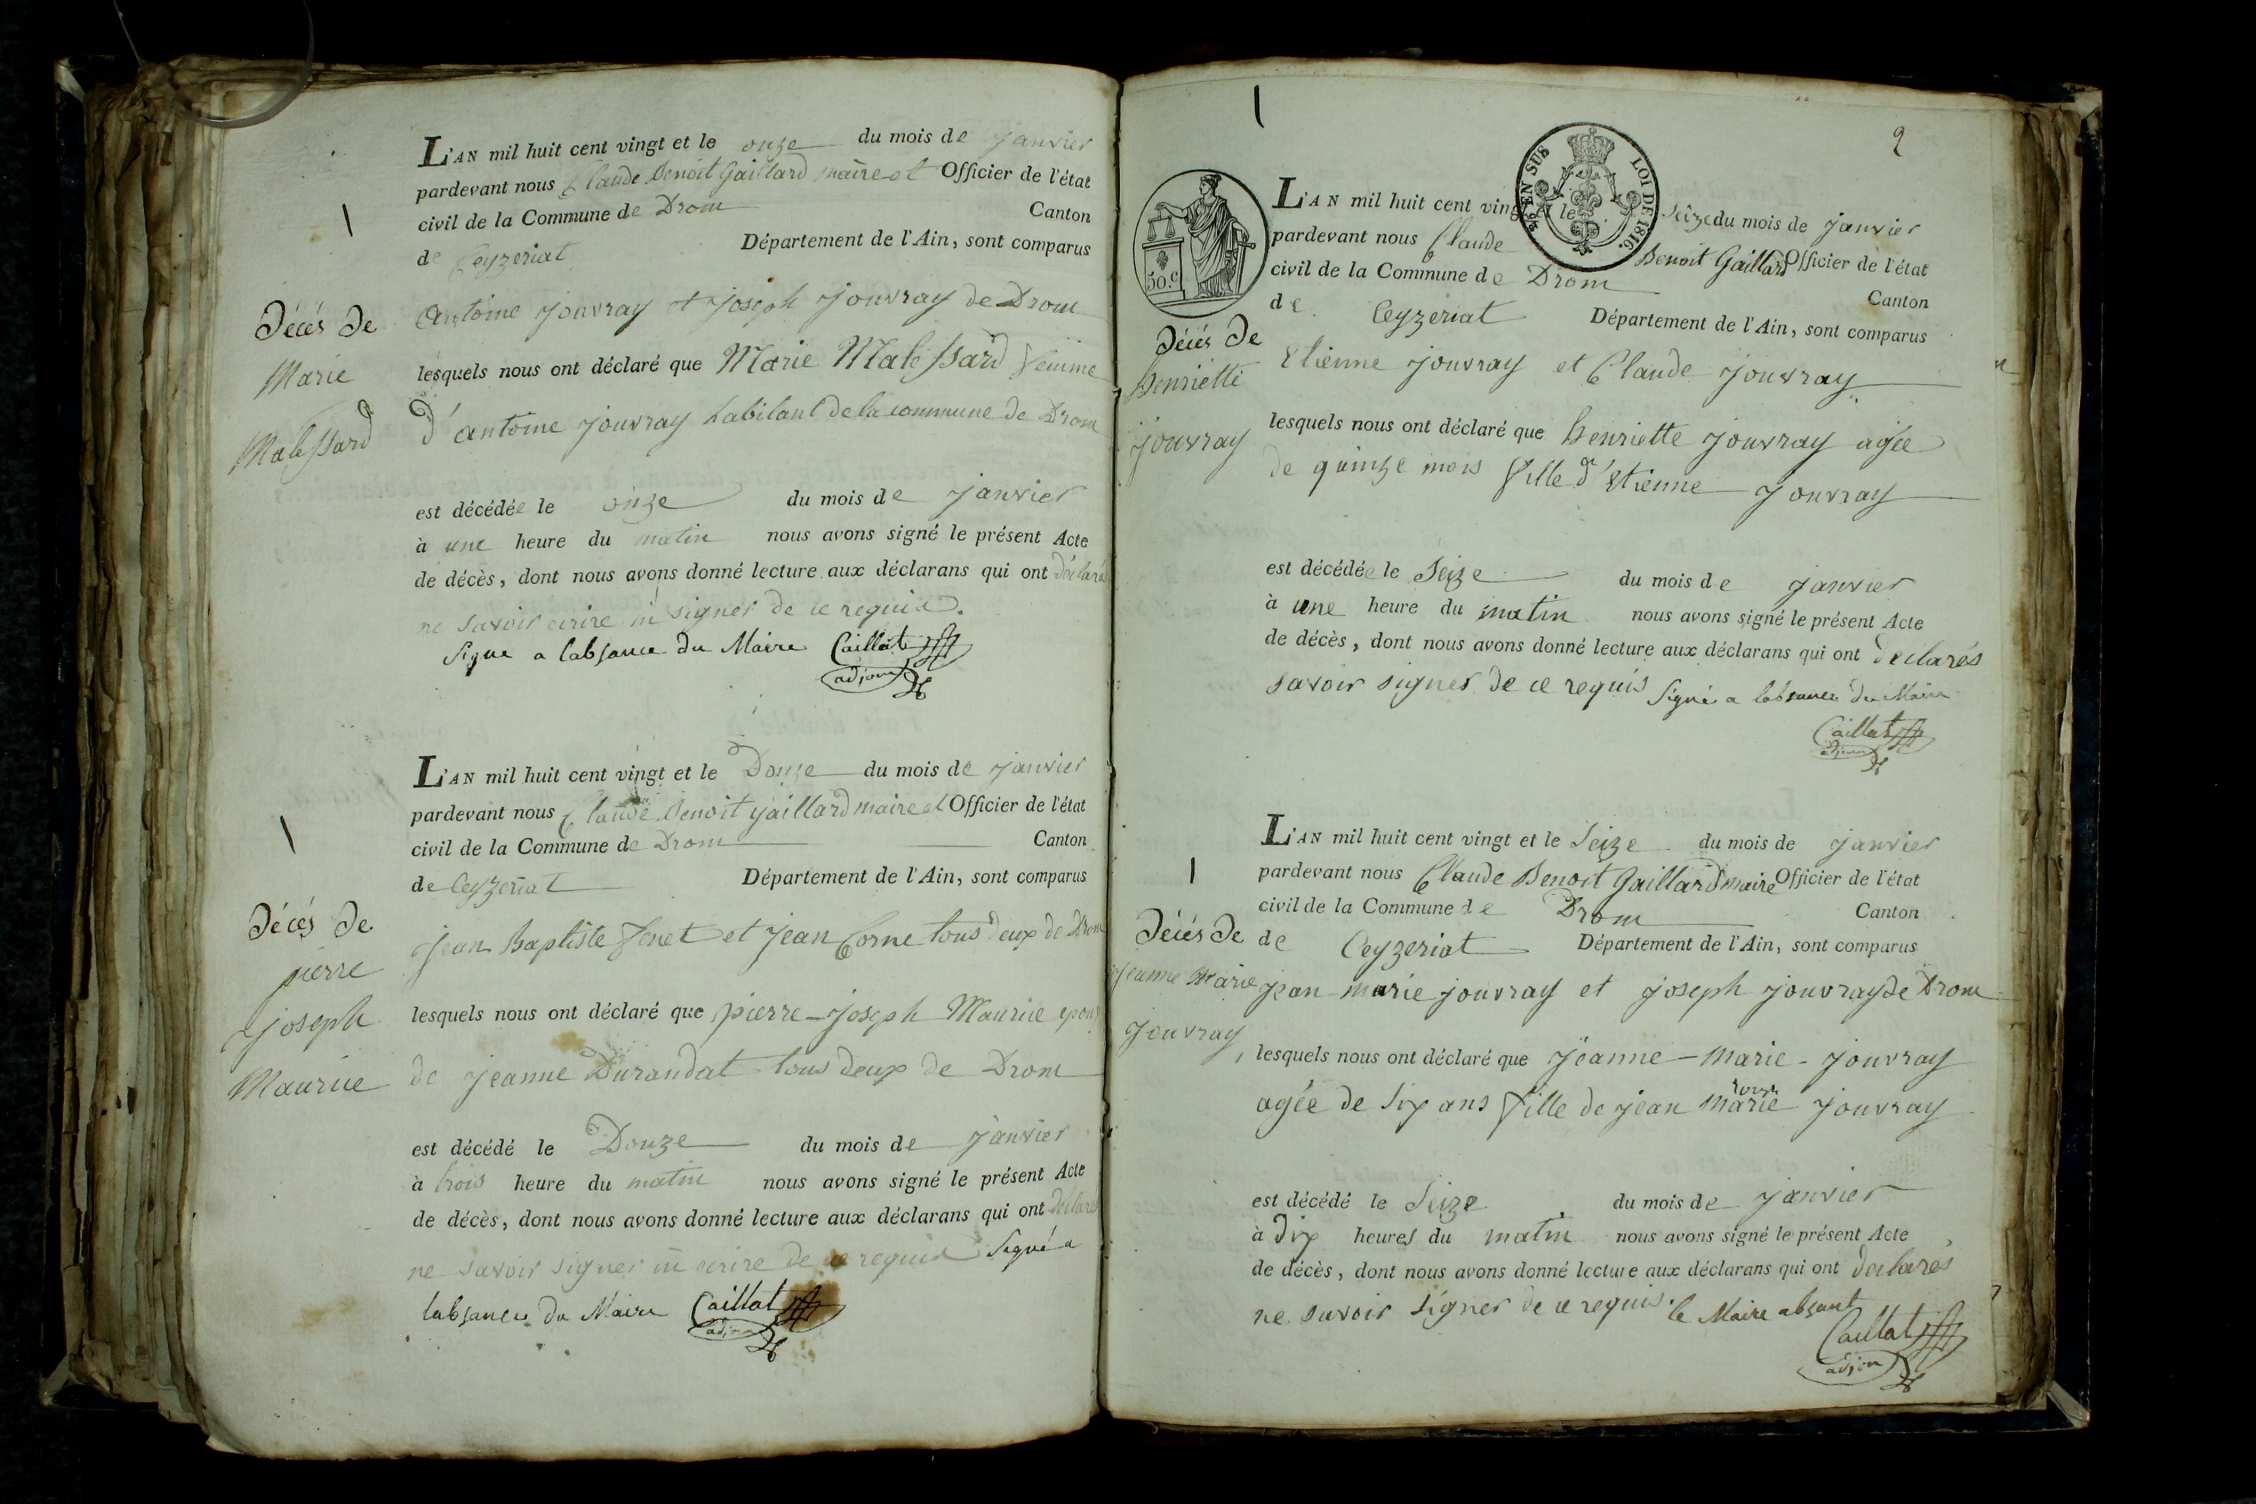 L'AN mil huit cent vingt et le onze du mois de janvier
pardevant nous Claude Benoit Gaillard maire et Officier de l'état
civil de la Commune de Drom Canton
de Ceyzeriat Département de l'Ain, sont comparus
Décés de
Marie
Malessard
Antoine jouvray et joseph jouvray de Drom
lesquels nous ont déclaré que Marie Malessard femme
d'antoine jouvray habitant de la commune de Drom
est décédée le onze du mois de janvier
à une heure du matin nous avons signé le présent Acte
de décès, dont nous avons donné lecture aux déclarans qui ont déclaré
ne savoir ecrire ni signer de ce requis.
Signe a labsance du Maire Caillat
adjoin
L'AN mil huit cent vingt et le Douze du mois de janvier
pardevant nous Claude Benoit gaillard maire et Officier de l'état
civil de la Commune de Drom Canton
de Ceyzeriat Département de l'Ain, sont comparus
Décés de
pierre
joseph
Maurice
jean Baptiste et jean Corne tous deux de Drom
lesquels nous ont déclaré que pierre-joseph Maurice epoux
de jeanne Durandat tous deux de Drom
est décédé le Douze du mois de janvier
à trois heure du matin nous avons signé le présent Acte
de décès, dont nous avons donné lecture aux déclarans qui ont déclarés
ne savoir signer ni ecrire de ce requis Signé a
labsance du Maire Caillat
adjoin
2
EN SUS LOI DE 1816.
50.c
L'AN mil huit cent vingt le Seize du mois de janvier
pardevant nous Claude Benoit Gaillard Officier de l'état
civil de la Commune de Drom Canton
de Ceyzeriat Département de l'Ain, sont comparus
Décés de
henriette
jouvray
Etienne jouvray et Claude jouvray
lesquels nous ont déclaré que henriette jouvray agée
de quinze mois fille d'Etienne jouvray
est décédée le Seize du mois de janvier
à une heure du matin nous avons signé le présent Acte
de décès, dont nous avons donné lecture aux déclarans qui ont declarés
savoir signer de ce requis Signé a labsance du Maire
Caillat
adjoin
L'AN mil huit cent vingt et le Seize du mois de janvier
pardevant nous Claude Benoit Gaillard maire Officier de l'état
civil de la Commune de Drom Canton
de Ceyzeriat Département de l'Ain, sont comparus
Décés de
jeanne Marie
jouvray
jean marie jouvray et joseph jouvray de Drom
lesquels nous ont déclaré que jeanne-marie-jouvray
agée de Six ans fille de jean marie jouvray
est décédé le Seize du mois de janvier
à dix heures du matin nous avons signé le présent Acte
de décès, dont nous avons donné lecture aux déclarans qui ont declarés
ne savoir signer de ce requis. le Maire absant
Caillat
adjoin